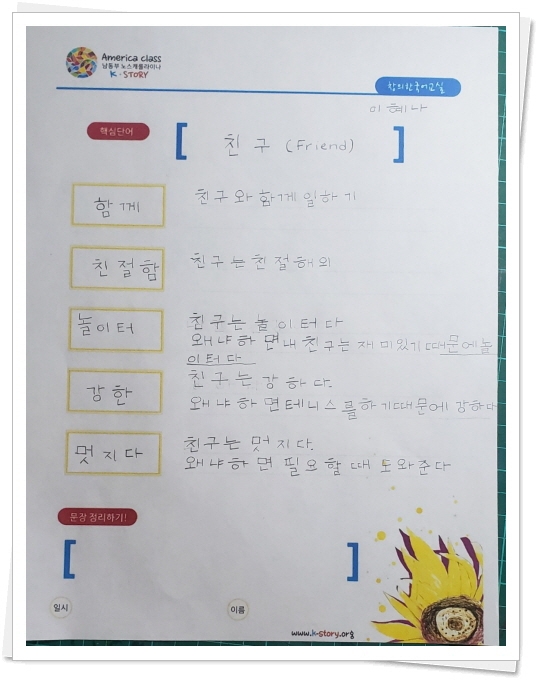 America class
남동부 노스캐롤라이나
K-STORY
창의한국어교실
이혜나
핵심단어
[ 친구 (Friend) ]
함께
친구와 함께 일하기
친절함
친구는 친절해의
놀이터
친구는 놀이터다
왜냐하면 내 친구는 재미있기 때문에 놀
이터다
강한
친구는 강하다.
왜냐하면 테니스를하기때문에 강하다
멋지다
친구는 멋지다.
왜냐하면 필요할때 도와준다
문장 정리하기!
[ ]
일시
이름
www.k-story.org